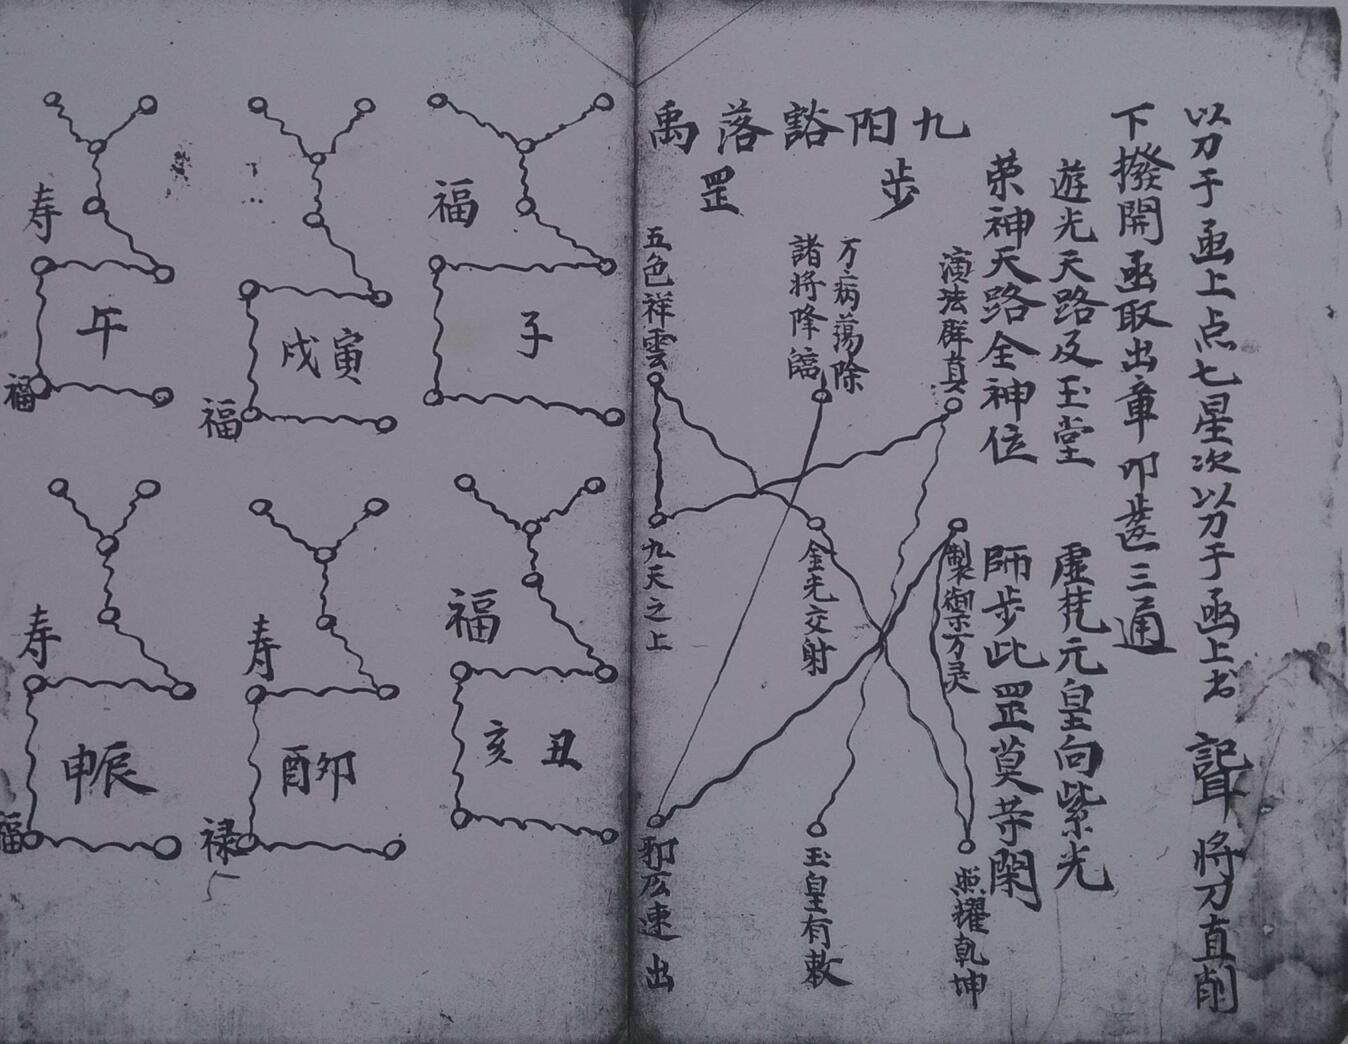 以刀于函上点七星次以刀于函上书 將刀直削
下撥開函取出章叩齒三通
遊光天路及玉堂 虛梵元皇向紫光
荣神天路全神位 師步此罡莫等閑
九阳豁落禹
步罡
演法群真
万病蕩除
諸將降臨
五色祥雲
製御万灵
金光交射
九天之上
照耀乾坤
玉皇有敕
邪広速出
福
子
福
丑
亥
寅
戌
福
寿
卯
酉
禄
寿
午
福
寿
辰
申
福